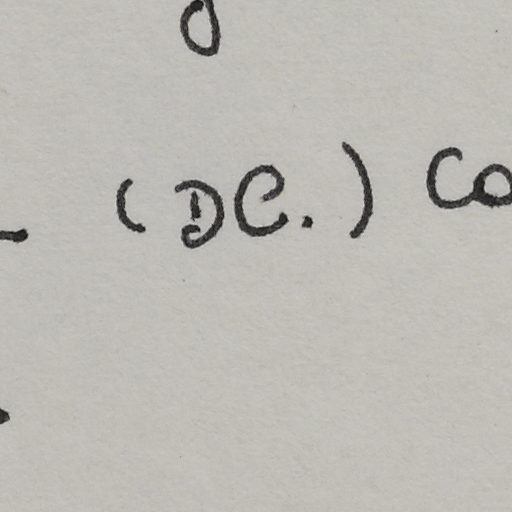 (DC.) Co